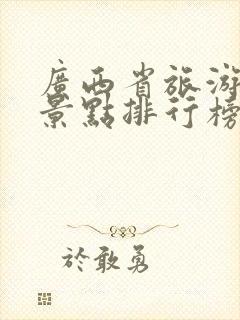 廣西省旅游
景點排行榜
於敢勇